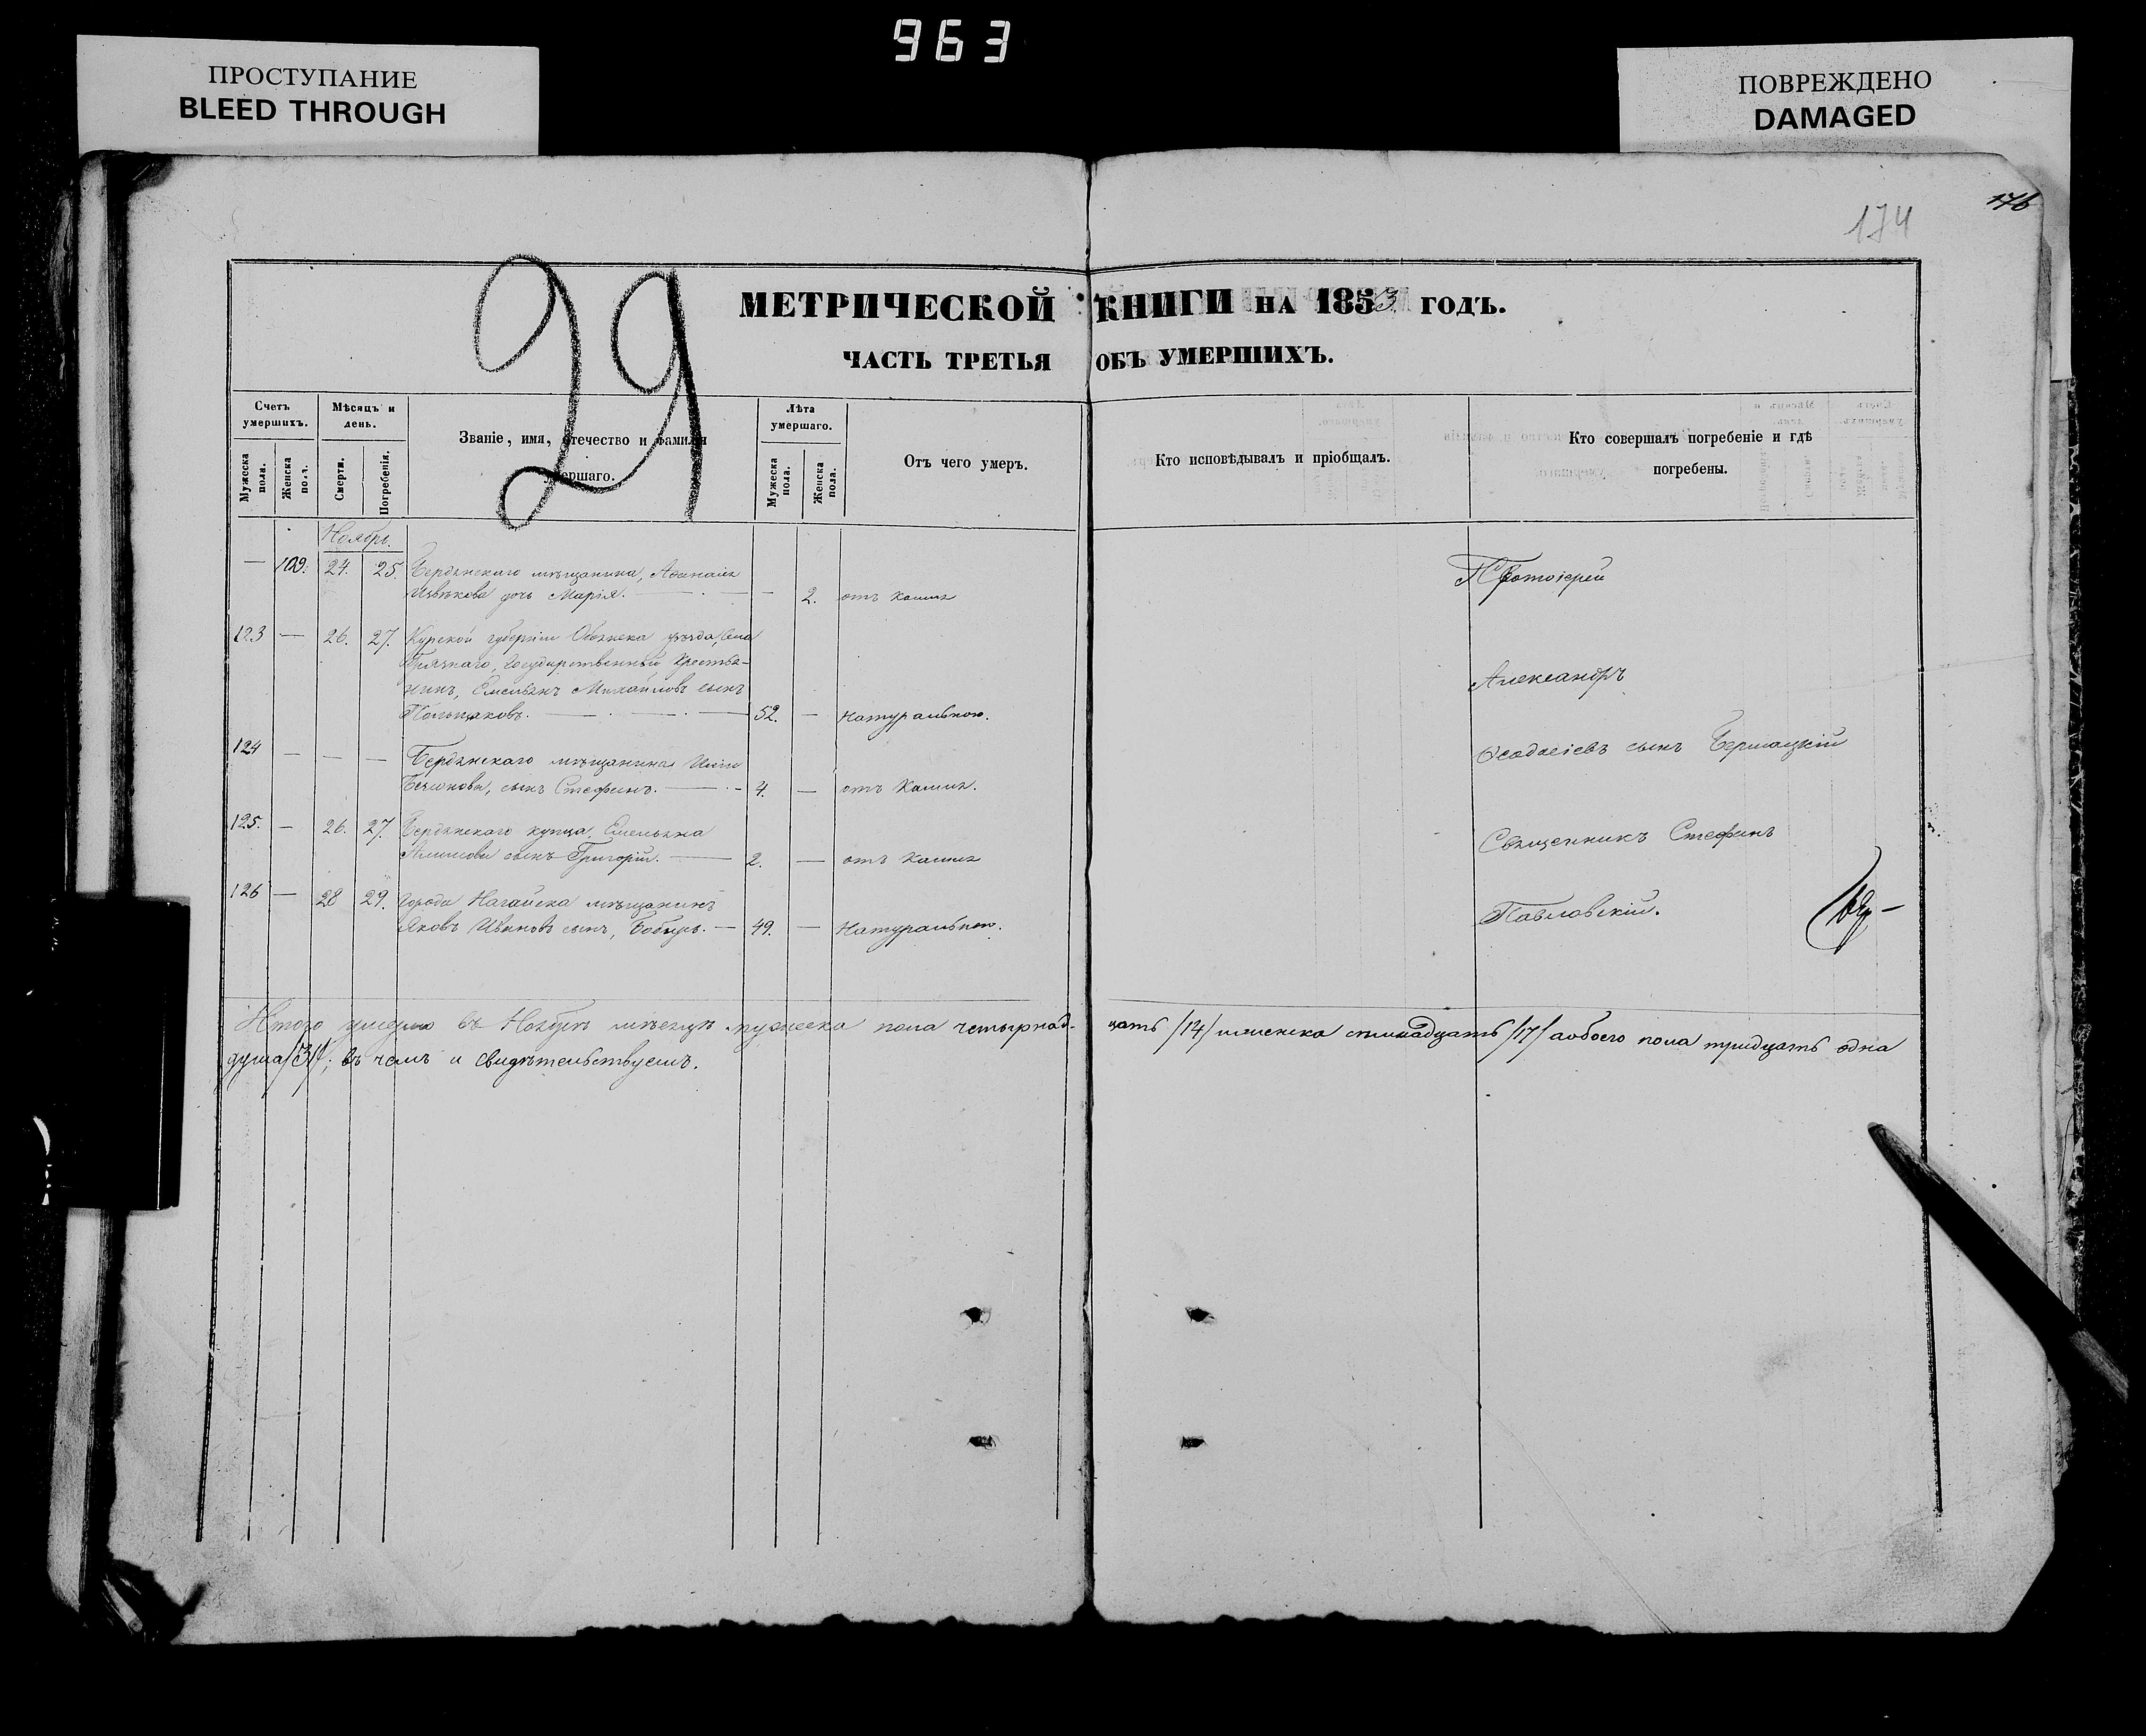 963
ПРОСТУПАНИЕ
BLEED THROUGH
ПОВРЕЖДЕНО
DAMAGED
176
174
29
МЕТРИЧЕСКОЙ КНИГИ НА 1853 ГОДЪ.
ЧАСТЬ ТРЕТЬЯ ОБЪ УМЕРШИХЪ.
Счетъ умершихъ.
Мужеска пола.
Женска пола.
Мѣсяцъ и день.
Смерти.
Погребенія.
Званіе, имя, отечество и фамилія
умершаго.
Лѣта умершаго.
Мужеска пола.
Женска пола.
Отъ чего умеръ.
Кто исповѣдывалъ и пріобщалъ.
Кто совершалъ погребеніе и гдѣ
погребены.
Ноябрь.
— 109. 24. 25. Бердянскаго мѣщанина, Аѳанасія
дочь Марія. — 2. отъ кашля
123 — 26. 27. Курской губерніи Обоянска уѣзда, села
Государственный крестья-
нинъ, Емельянъ Михайловъ сынъ
52. — натуральною.
124 — — — Бердянскаго мѣщанина
сынъ Стефанъ. 4. — отъ кашля.
125. — 26. 27. Бердянскаго купца Емельяна
сынъ Григорій. 2. — отъ кашля
126 — 28 29. города Нагайска мѣщанинъ
Яковъ Ивановъ сынъ, Бобырь. — 49. — Натуральною.
Протоіерей
Александръ
Ѳеодосіевъ сынъ
Священникъ Стефанъ
Павловскій.
Итого умерло въ Ноябрѣ мѣсяцѣ мужеска пола четырнад-цать /14/ женска семнадцать /17/ а обоего пола тридцать одна
душа /31/; въ чемъ и свидѣтельствуемъ.